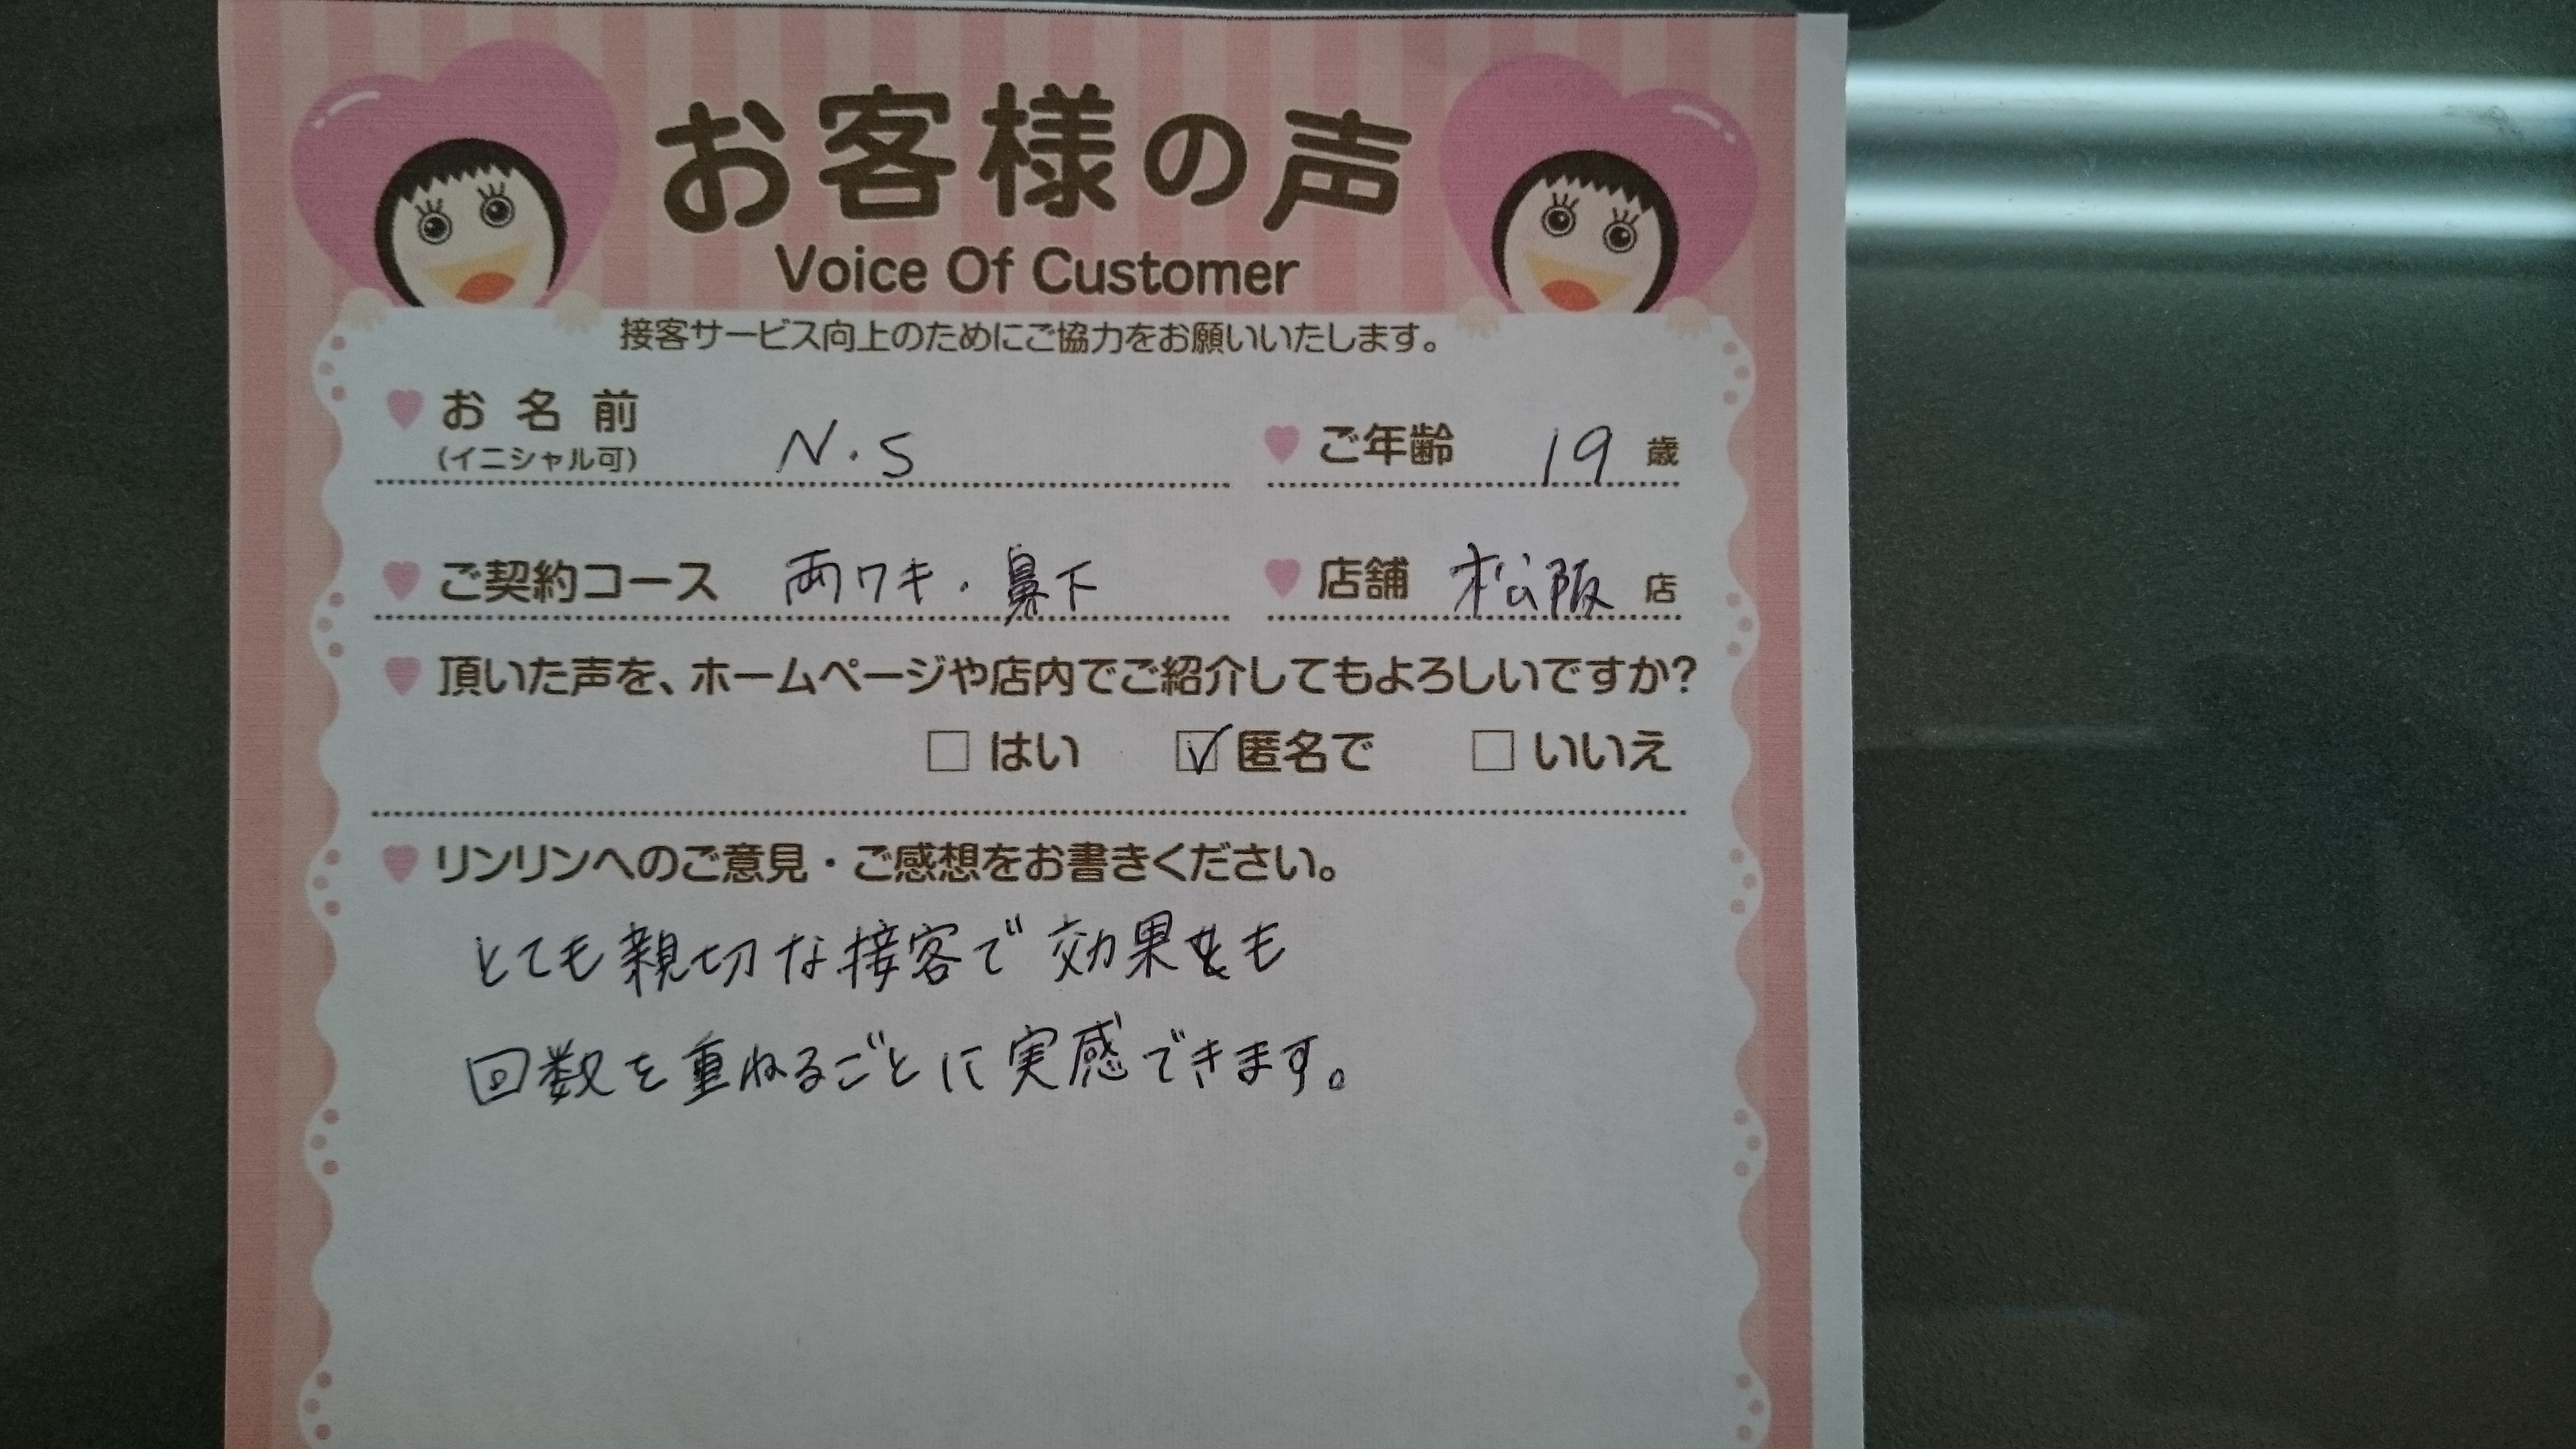 お客様の声
Voice Of Customer
接客サービス向上のためにご協力をお願いいたします。
お名前 N.S ご年齢 19 歳
(イニシャル可)
ご契約コース 両ワキ・鼻下 店舗 松阪 店
頂いた声を、ホームページや店内でご紹介してもよろしいですか?
□ はい ☑ 匿名で □ いいえ
リンリンへのご意見・ご感想をお書きください。
とても親切な接客で効果も
回数を重ねるごとに実感できます。